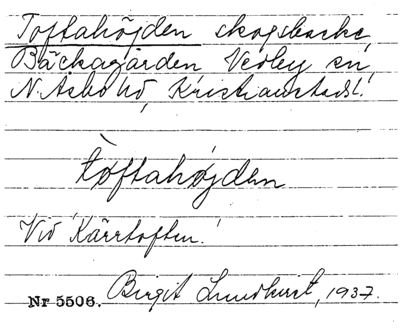 Toftahöjden skogsbacke,
Bäckagården Vedby sn,
N. Åsbo hd, Kristianstads l.
tòftahöjden
Vid 'Kärrtoften'.
Nr 5506. Birgit Lundkvist, 1937.